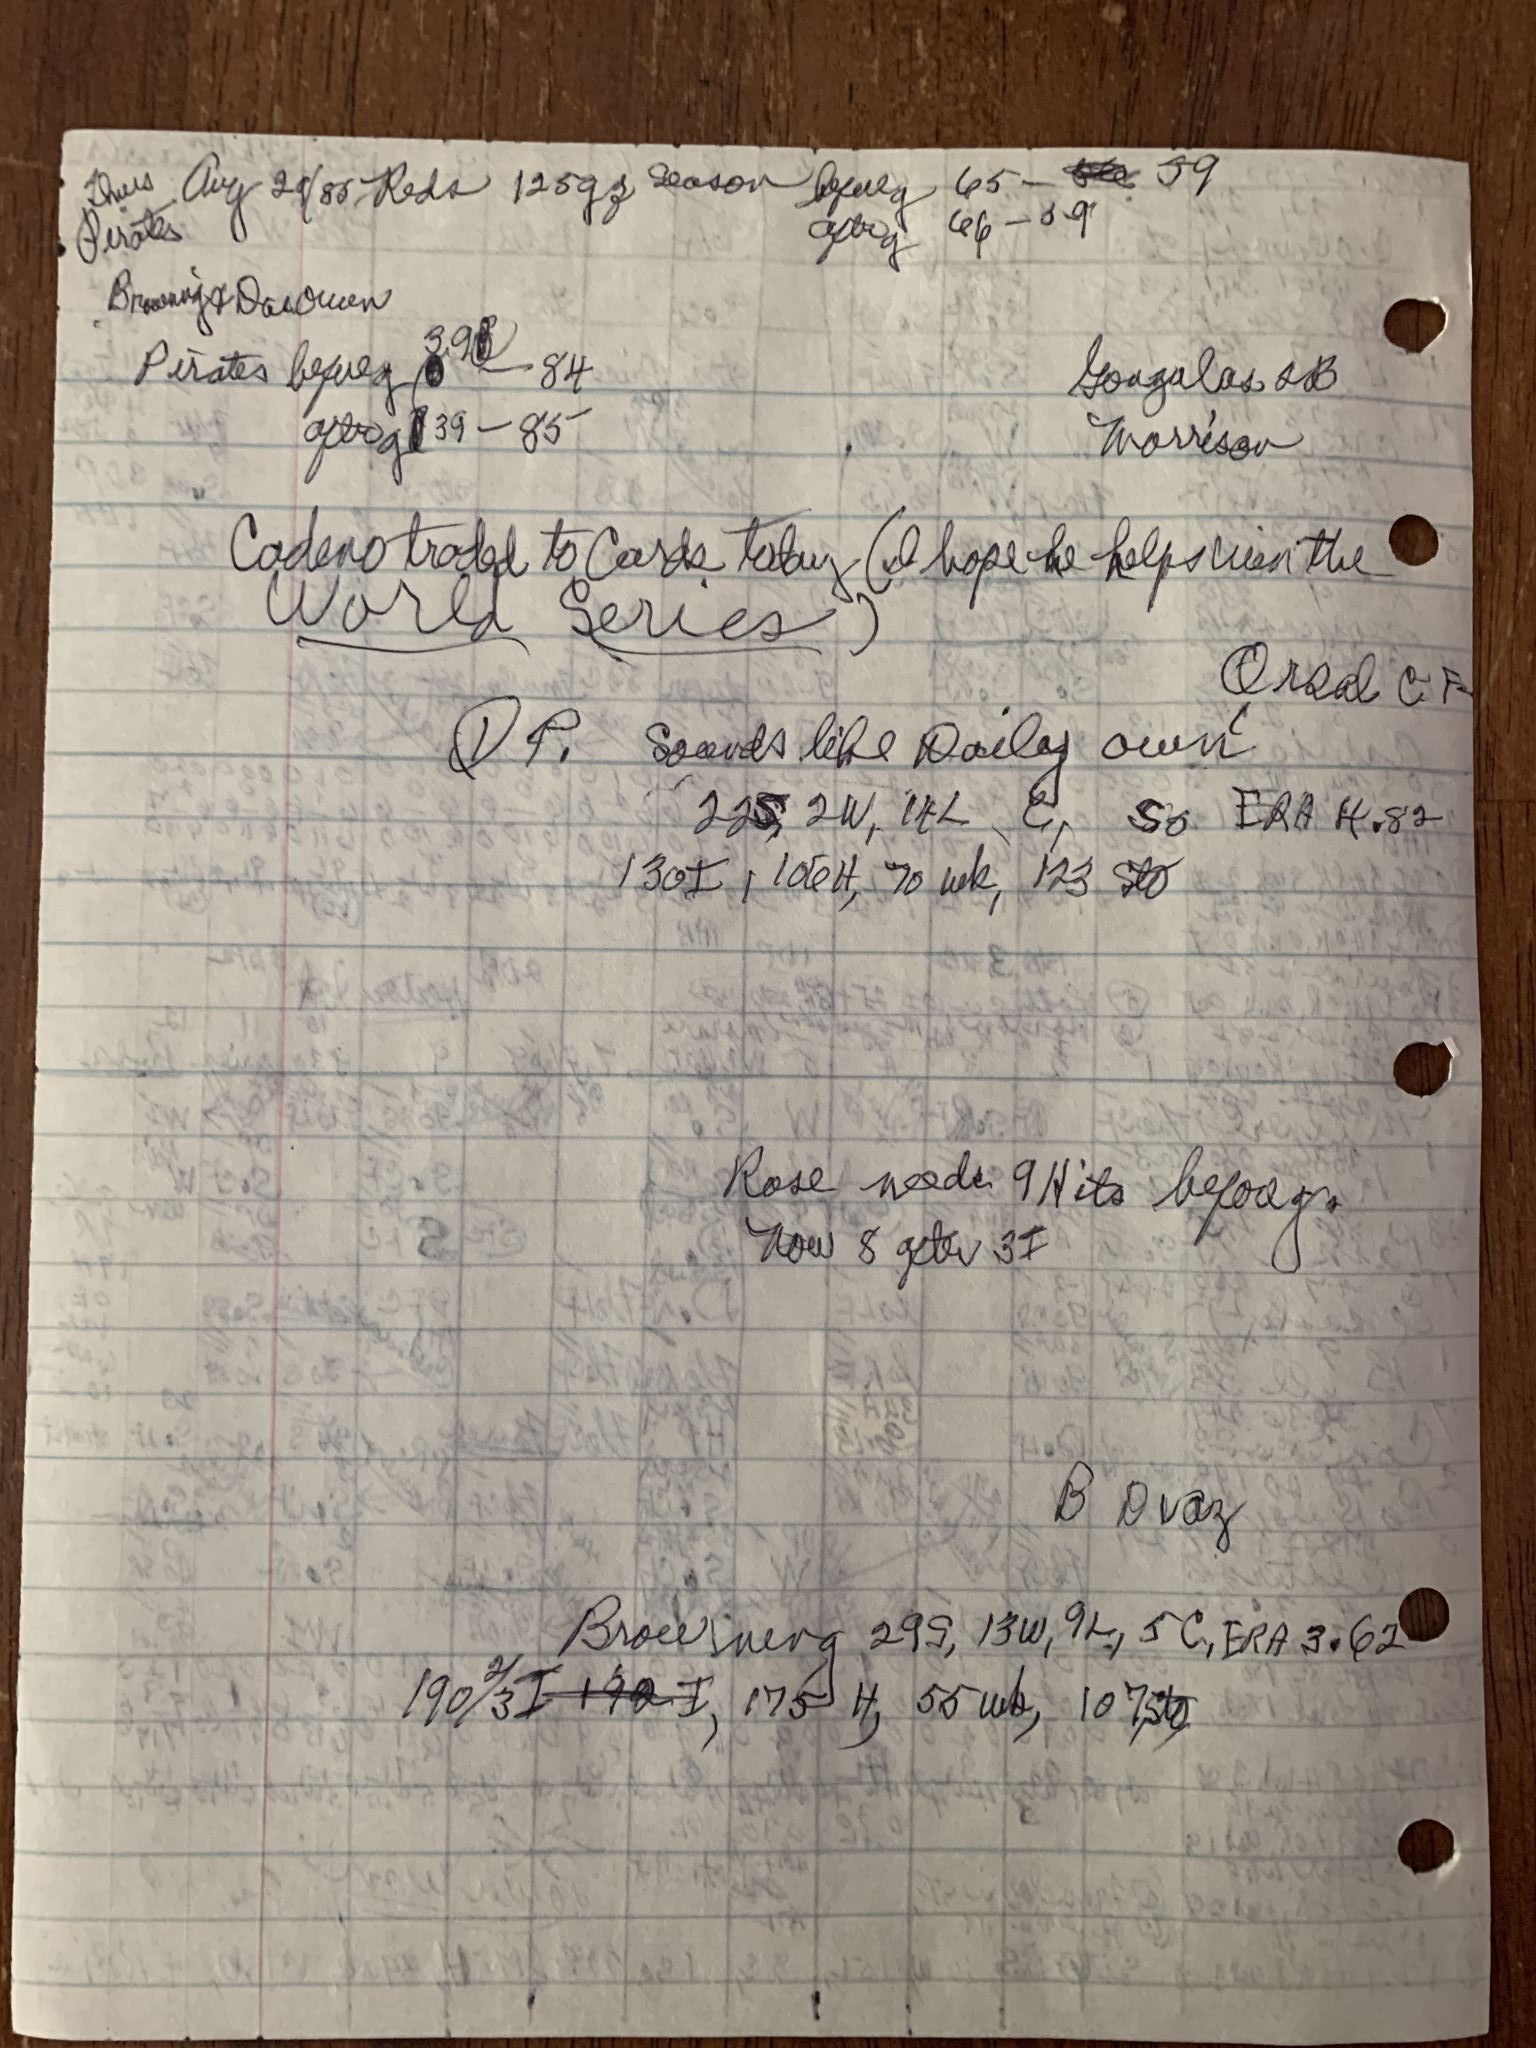 Thurs Aug 29/85 Reds 125g of season before g 65 - 59
Pirates after g 66 - 59
Browning & DaeOwen
Pirates before g 39 - 84
after g 39 - 85
Gonzalas 2B
Morrison
Cadeno traded to Cards today (I hope he helps win the
World Series)
Orsal C F
D P. Sounds like Daily own
22S, 2W, 14L C, So ERA 4.82
130I, 106H, 70 wk, 123 sto
Rose needs 9 Hits before g.
Now 8 after 3I
B Dvaz
Browning 29S, 13W, 9L, 5C, ERA 3.62
190 2/3 I 192 I, 175 H, 55 wk, 107 sto